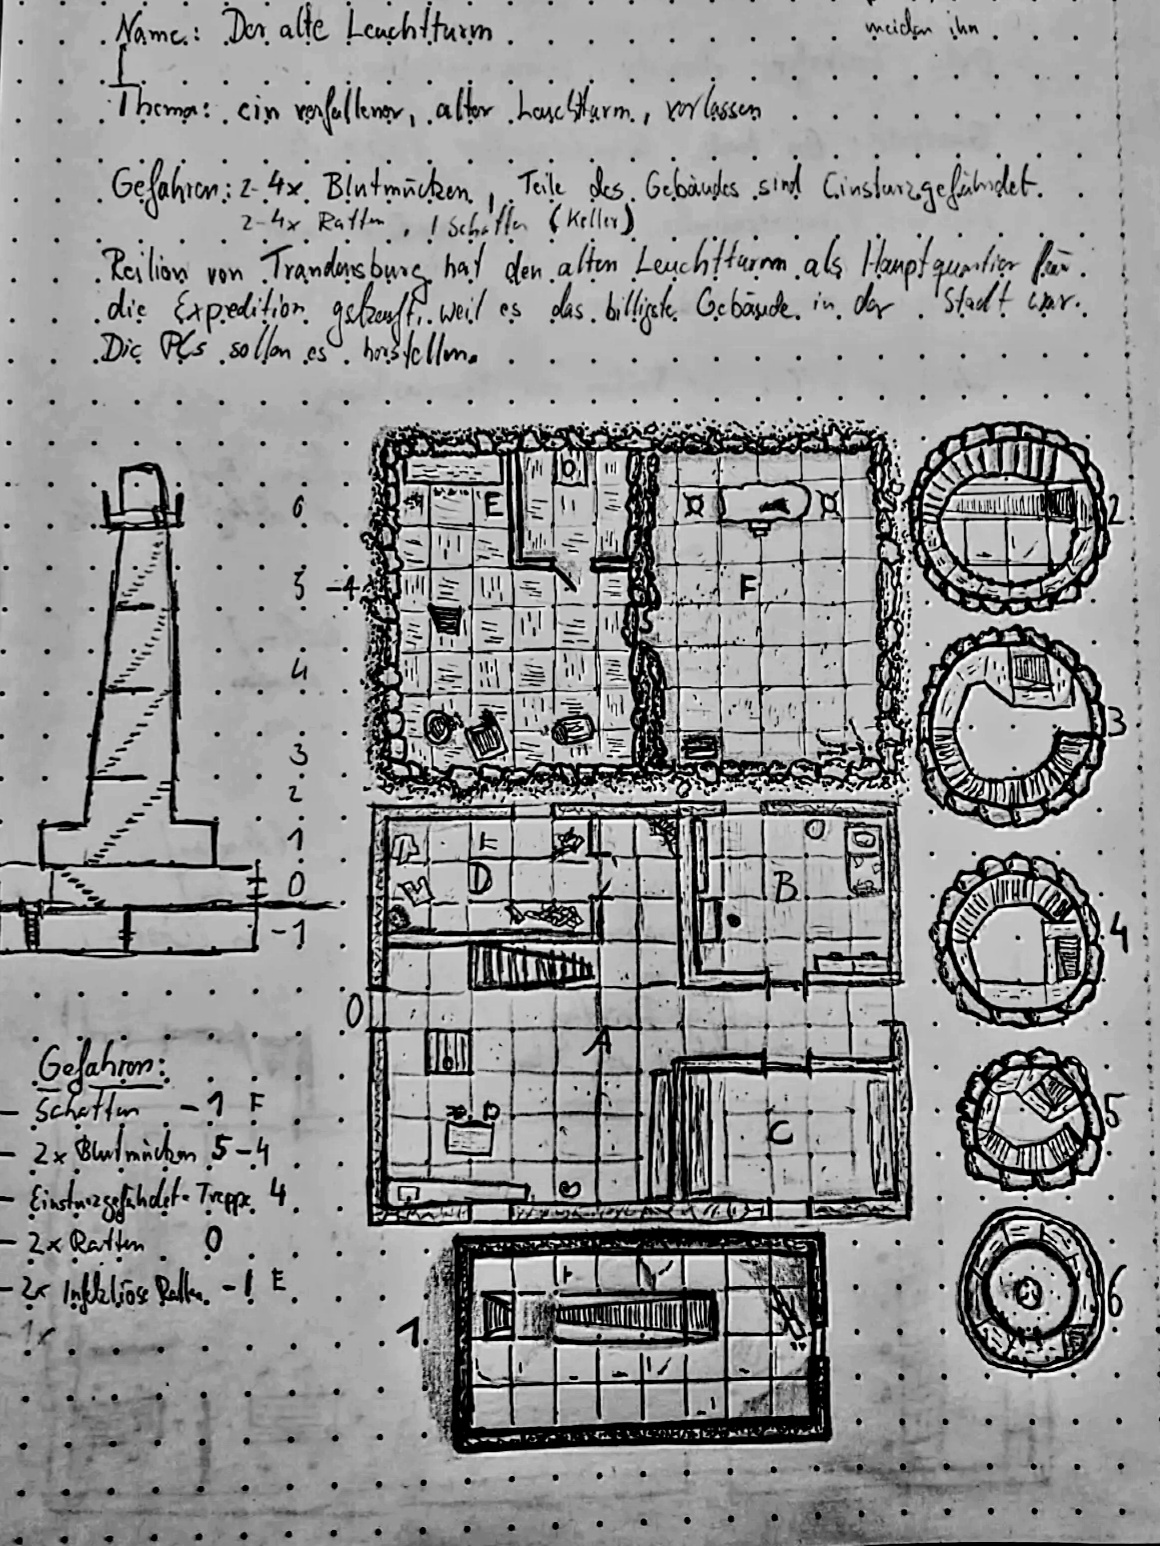 meiden ihn
Name: Der alte Leuchtturm
Thema: ein verfallener, alter Leuchtturm, verlassen
Gefahren: 2-4x Blutmücken, Teile des Gebäudes sind Einsturzgefährdet.
2-4x Ratten, 1 Schatten (Keller)
Reilion von Trandensburg hat den alten Leuchtturm als Hauptquartier für
die Expedition gekauft, weil es das billigste Gebäude in der Stadt war.
Die PCs sollen es herstellen.
6
5
4
3
2
1
0
-1
-1
E
F
D
B
0
A
C
1
2
3
4
5
6
Gefahren:
- Schatten -1 F
- 2x Blutmücken 5-4
- Einsturzgefährdete Treppe 4
- 2x Ratten 0
- 2x Infektiöse Ratten -1 E
- 1x